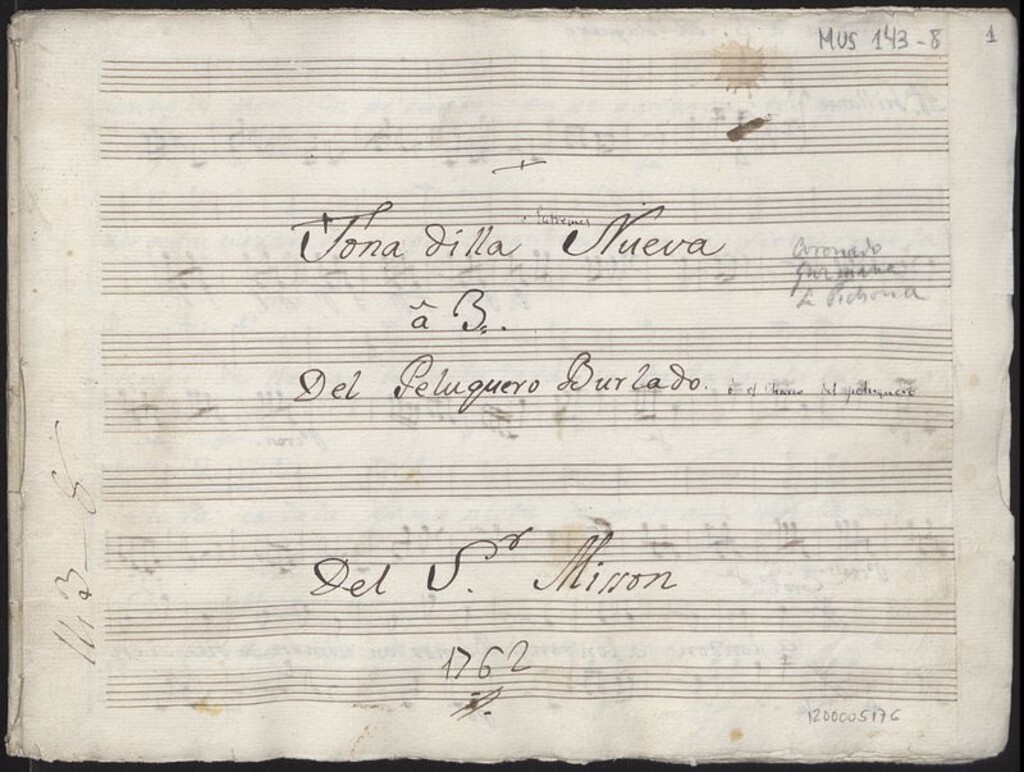 MUS 143-8
1
Tona dilla Nueva
Entremes
Coronado
Guzmana
La Pichona
â 3.
Del Peluquero Burlado. o el chasco del peluquero
Del S.r Misson
1762
143-8
1200005176